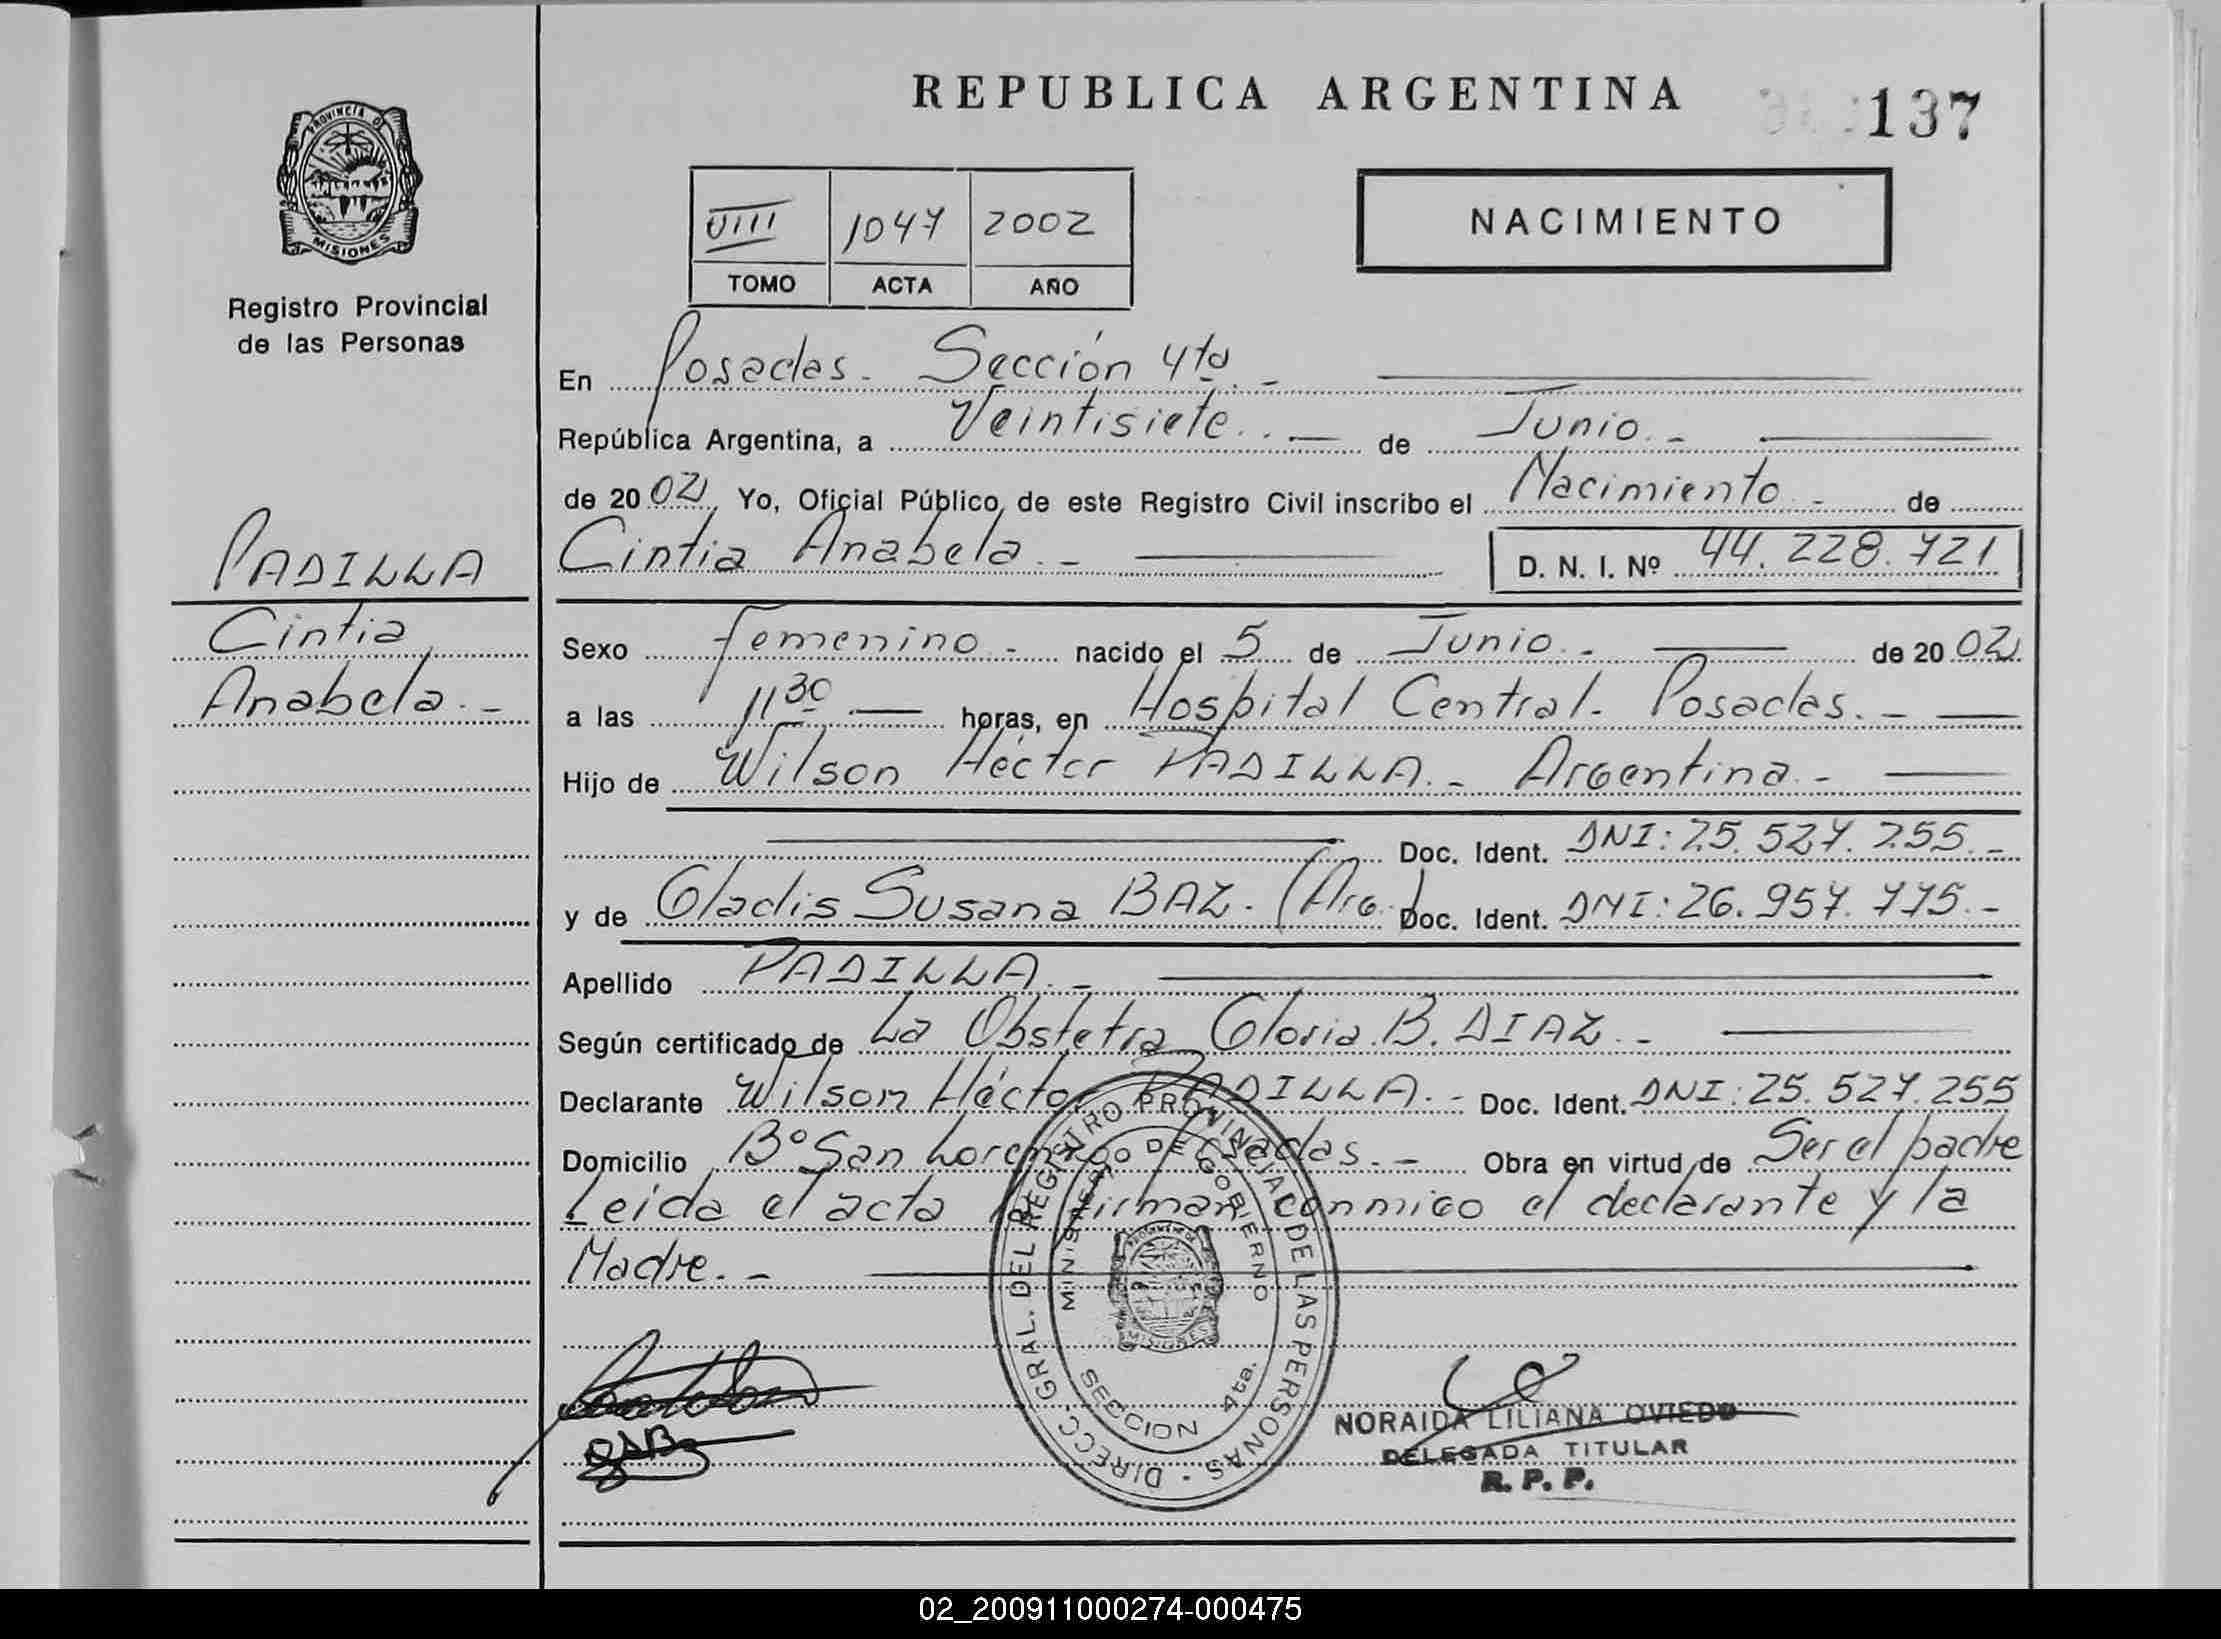 REPUBLICA ARGENTINA
137
PROVINCIA DE
MISIONES
Registro Provincial
de las Personas
VIII 1047 2002
TOMO ACTA AÑO
NACIMIENTO
En Posadas.- Sección 4ta.-
República Argentina, a Veintisiete.- de Junio.-
de 2002, Yo, Oficial Público, de este Registro Civil inscribo el Nacimiento.- de
Cintia Anabela.- D. N. I. Nº 44.228.721
PADILLA
Cintia
Anabela.-
Sexo femenino.- nacido el 5 de Junio.- de 2002
a las 11 30 horas, en Hospital Central- Posadas.-
Hijo de Wilson Héctor PADILLA.- Argentina.-
Doc. Ident. DNI: 25.527.255.-
y de Gladis Susana BAZ. (Arg.) Doc. Ident. DNI: 26.957.775.-
Apellido PADILLA.-
Según certificado de La Obstetra Gloria B. DIAZ.-
Declarante Wilson Héctor PADILLA.- Doc. Ident. DNI: 25.527.255
Domicilio Bº San Lorenzo Posadas.- Obra en virtud de Ser el padre
Leida el acta firman conmigo el declarante y la
Madre.-
DIRECC. GRAL. DEL REGISTRO PROVINCIAL DE LAS PERSONAS -
MINISTERIO DE GOBIERNO
MISIONES
SECCION 4ta.
NORAIDA LILIANA OVIEDO
DELEGADA TITULAR
R. P. P.
02_200911000274-000475